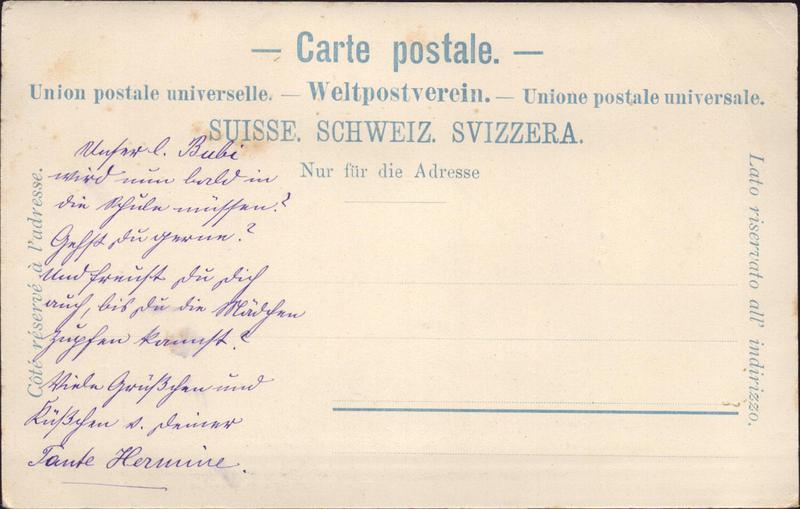 — Carte postale. —
Union postale universelle. — Weltpostverein. — Unione postale universale.
SUISSE. SCHWEIZ. SVIZZERA.
Nur für die Adresse
Côté réservé à l'adresse.
Lato riservato all' indirizzo.
Unser l. Bubi
wird nun bald in
die Schule müssen?
Gehst du gerne?
Und freust du dich
auch, bis du die Mädchen
zupfen kannst?
Viele Grüßchen und
Küßchen v. deiner
Tante Hermine.